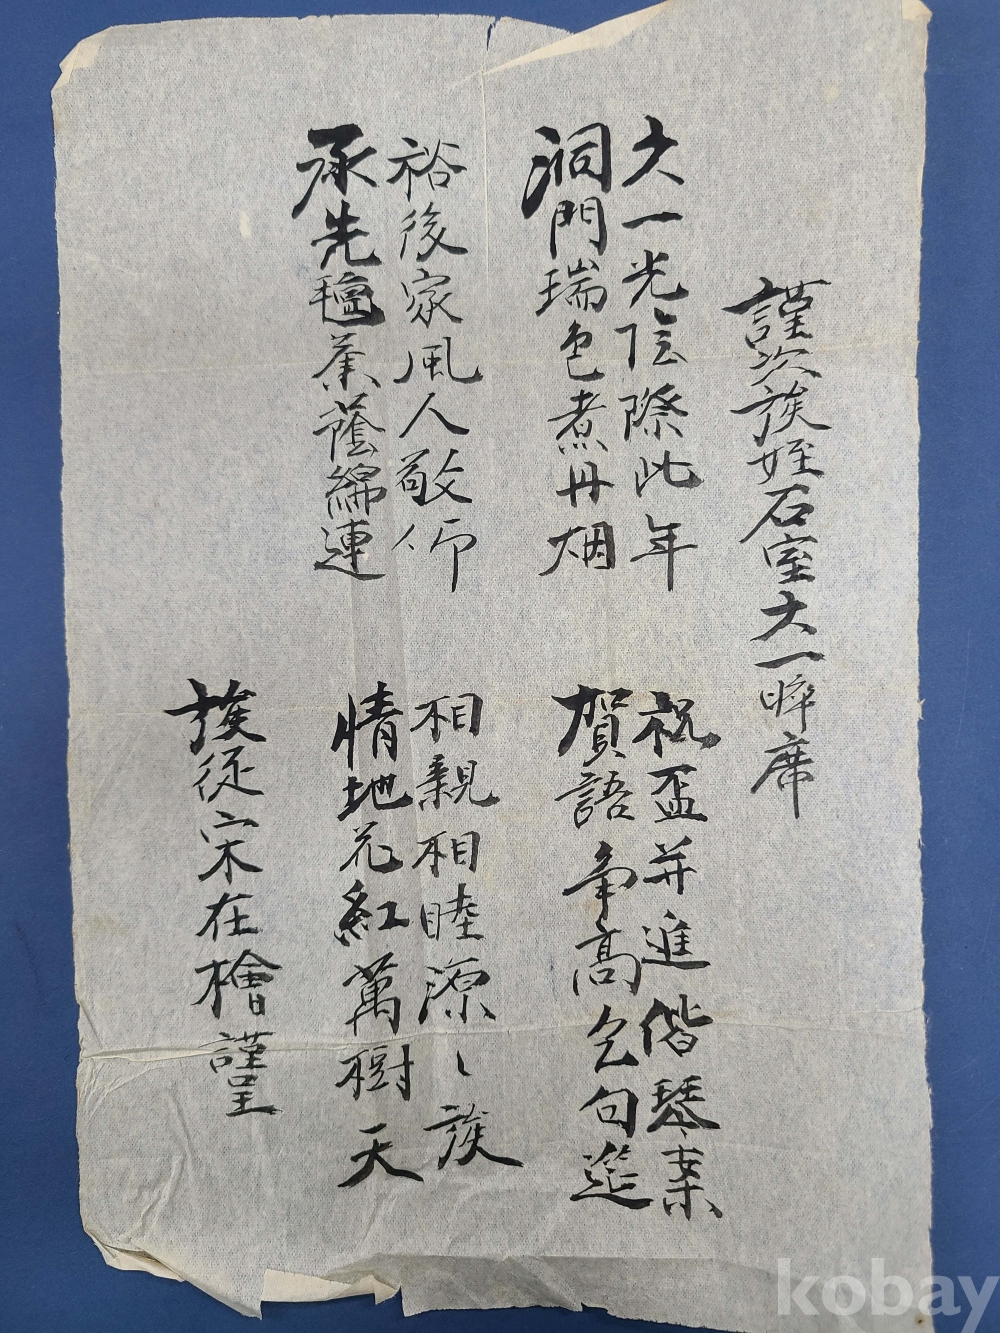 謹次族姪石室大一晬席
大一光陰際此年
祝盃并進偕琴案
洞門瑞色煮丹烟
賀語爭高乞句篇
裕後家風人敬仰
相親相睦源〻族
承先氊業蔭綿連
情地花紅萬樹天
族從宋在檜謹呈
kobay